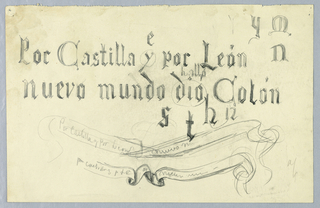 y m
e n
Por Castilla y por León
halló
nuevo mundo dio Colón
s t h n
Por Castilla y Por León
nuevo m
por Castilla y p